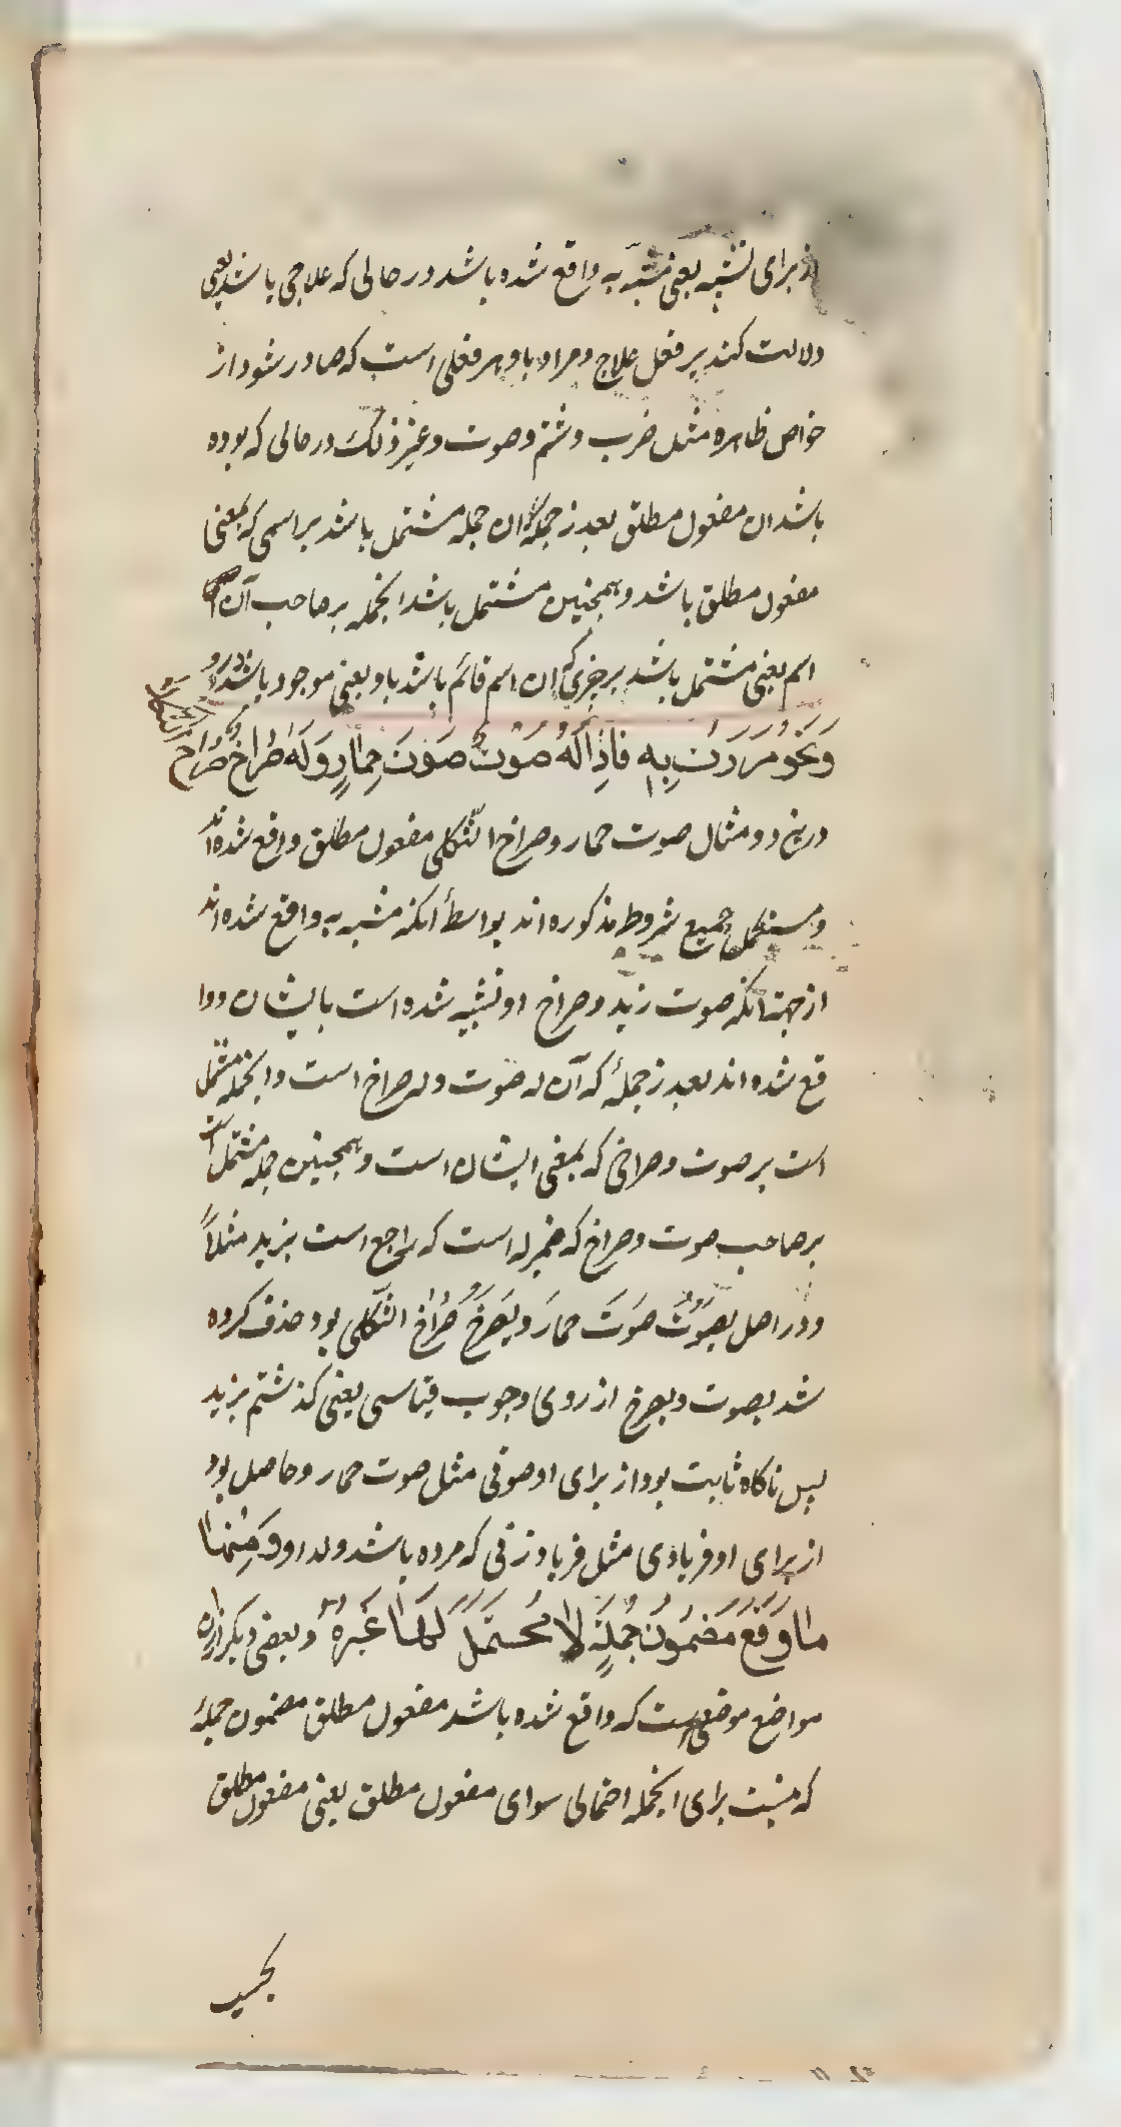 از برای تشبیه یعنی مشبه به واقع شده باشد در حالی که علاجی باشد یعنی
دلالت کند بر فعل علاج و مراد باو هر فعلی است که صادر شود از
خواص ظاهره مثل ضرب و شتم و صوت و غیر ذلک در حالی که بوده
باشد ان مفعول مطلق بعد ز جملهٔ که ان جمله مشتمل باشد بر اسمی که بمعنی
مفعول مطلق باشد و همچنین مشتمل باشد انجمله بر صاحب آن
اسم یعنی مشتمل باشد بر چیزی که ان اسم قائم باشد باو یعنی موجود باشد درو
وَنَحْوُ مَرَرْتُ بِهِ فَاِذَا لَهُ صَوْتٌ صَوْتَ حِمَارٍ وَلَهُ صُرَاخٌ صُرَاخَ الثَّكْلَى
درین دو مثال صوت حمار و صراخ الثّکلی مفعول مطلق واقع شده اند
و مستکمل جمیع شروط مذکوره اند بواسطهٔ انکه مشبه به واقع شده اند
از جهة انکه صوت زید و صراخ او تشبیه شده است بایشان و وا
قع شده اند بعد ز جملهٔ که آن له صوت و له صراخ است و انجمله مشتمل
است بر صوت و صراخی که بمعنی ایشان است و همچنین جمله مشتمل است
بر صاحب صوت و صراخ که ضمیر له است که راجع است بزید مثلاً
و در اصل یصوّتُ صَوتَ حمار و یَصرخُ صُراخَ الثکلی بود حذف کرده
شد یصوت و یصرخ از روی وجوب قیاسی یعنی کذشتم بزید
پس ناکاه ثابت بود از برای او صوتی مثل صوت حمار و حاصل بود
از برای او فریادی مثل فریاد زنی که مرده باشد ولد او وَمِنْهَا
مَا وَقَعَ مَضْمُونَ جُمْلَةٍ لَا مُحْتَمَلَ لَهَا غَيْرُهُ و بعضی دیکر ازان
مواضع موضعی است که واقع شده باشد مفعول مطلق مضمون جملهٔ
که نیست برای انجمله احتمالی سوای مفعول مطلق یعنی مفعول مطلق